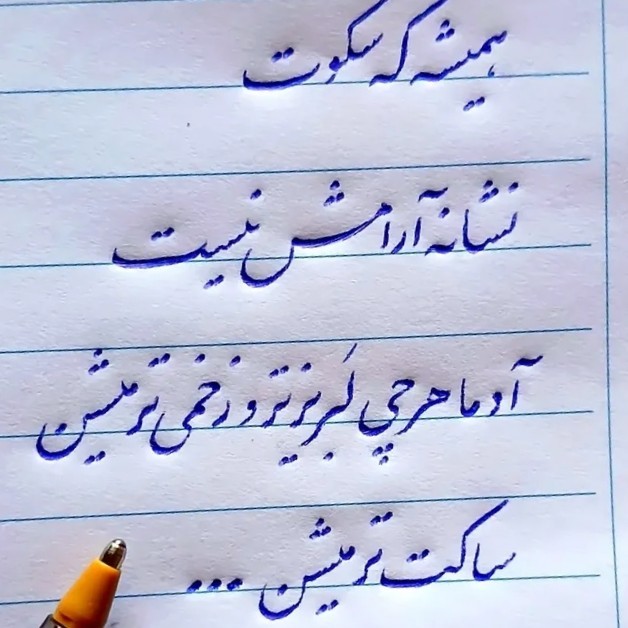 همیشه که سکوت
نشانه آرامش نیست
آدما هرچی لَبریزتر و زخمی تر میشن
ساکت تر میشن ...